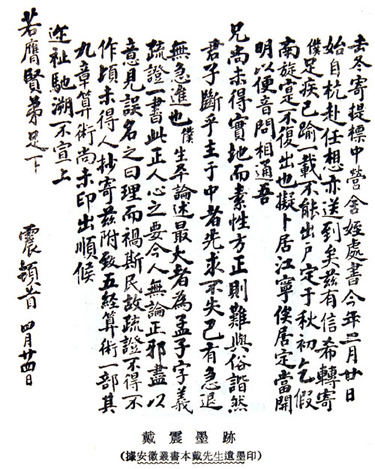 去冬寄提標中營舍姪處書今年三月廿日
始自杭赴任想亦送到矣茲有信希轉寄
僕足疾已踰一載不能出户定于秋初乞假
南旋實不復出也擬卜居江寧俟居定當開
明以便音問相通吾
兄尚未得實地而素性方正則難與俗諧然
君子斷乎主于中者先求不失己有急退
無急進也僕生平論述最大者為孟子字義
疏證一書此正人心之要今人無論正邪盡以
意見誤名之曰理而禍斯民故疏證不得不
作頃未得人抄寄茲附致五經算術一部其
九章算術尚未印出順候
近祉馳溯不宣上
若膺賢弟足下
震頓首 四月廿四日
戴震墨跡
(據安徽叢書本戴先生遺墨印)